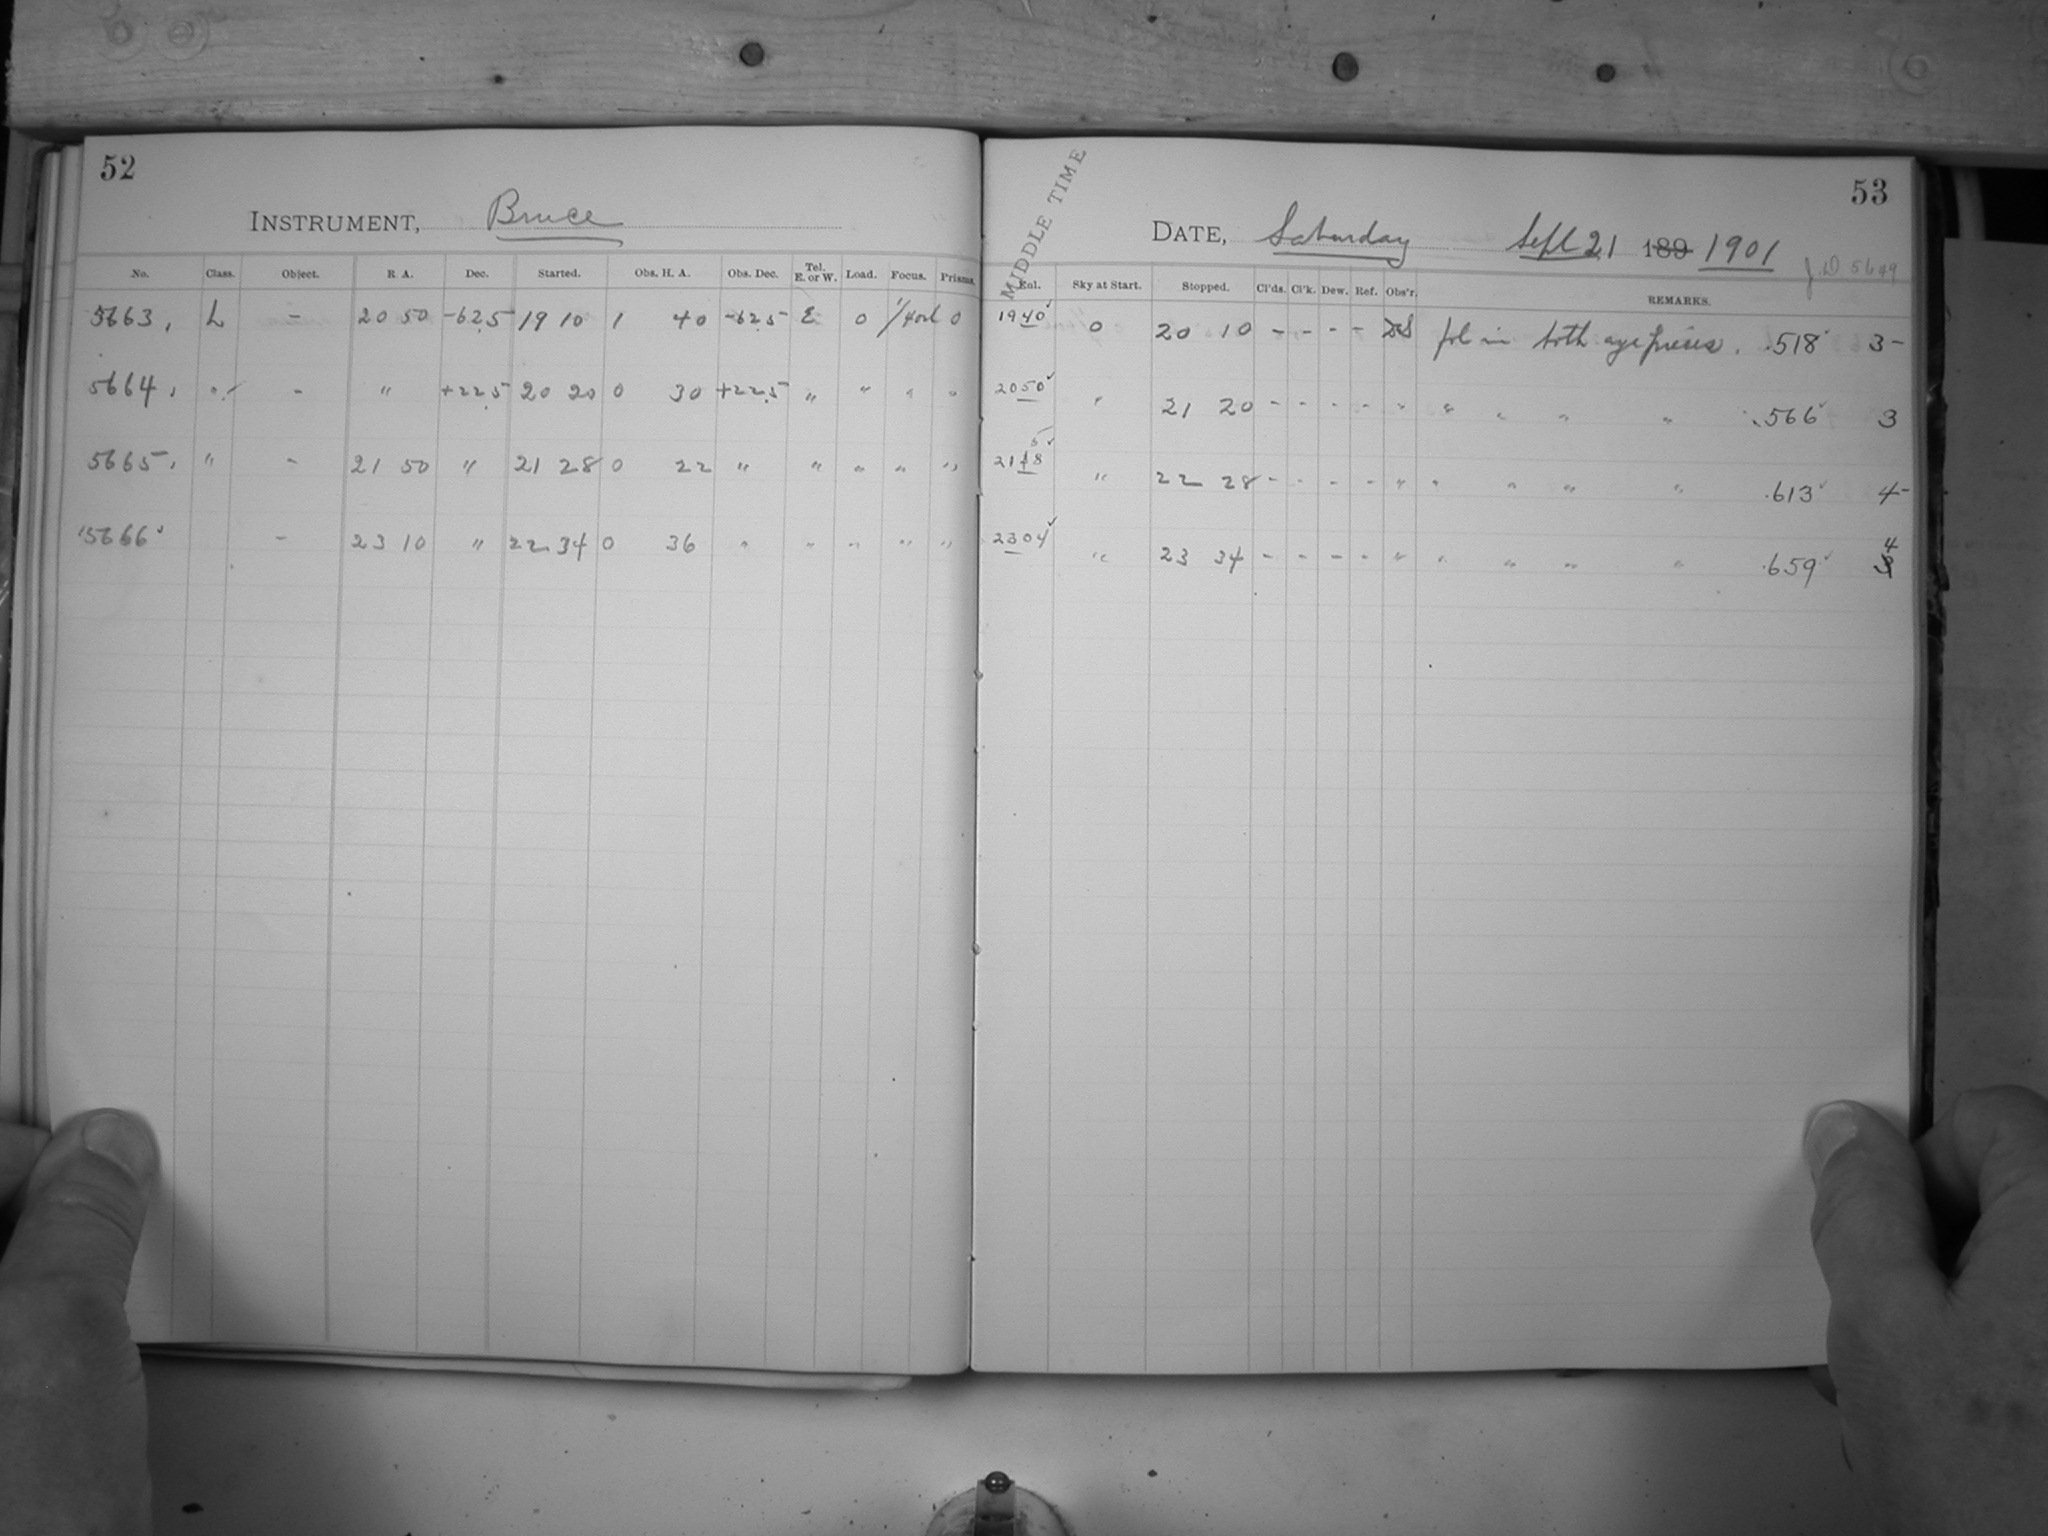 52
INSTRUMENT, Bruce
No. Class. Object. R. A. Dec. Started. Obs. H. A. Obs. Dec. Tel. E. or W. Load. Focus. Prisms.
5663, L - 20 50 -62.5 19 10 1 40 -62.5 E 0 0
5664, " - " +22.5 20 20 0 30 +22.5 " " " "
5665, " - 21 50 " 21 28 0 22 " " " " "
5666 - 23 10 " 22 34 0 36 " " " " "
53
MIDDLE TIME
DATE, Saturday Sept 21 189 1901
J.D 5649
Sky at Start. Stopped. Cl'ds. Cl'k. Dew. Ref. Obs'r. REMARKS.
1940 0 20 10 - - - - in both eyepieces. .518 3-
2050 " 21 20 - - - - " " " " " .566 3
21 58 " 22 28 - - - - " " " " " .613 4-
2304 " 23 34 - - - - " " " " " .659 4